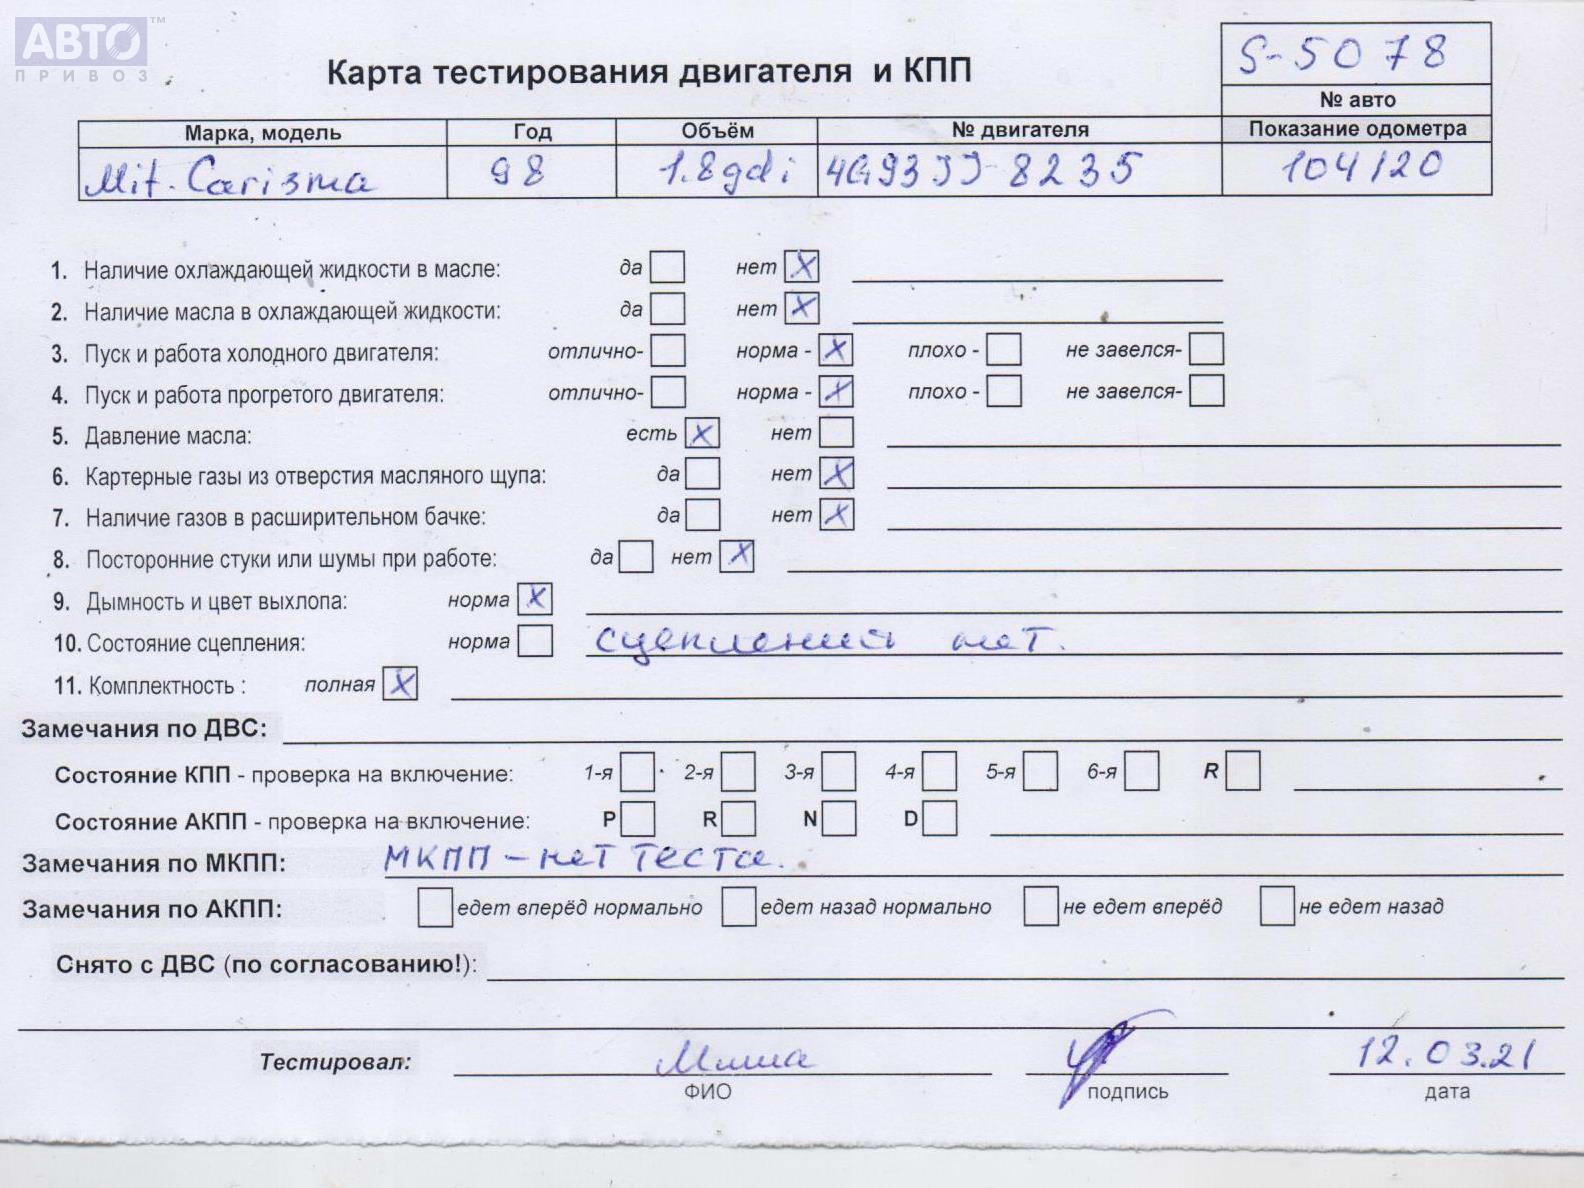 АВТО™
ПРИВОЗ
S-5078
Карта тестирования двигателя и КПП
№ авто
Марка, модель Год Объём № двигателя Показание одометра
Mit. Carisma 98 1.8gdi 4G93JJ-8235 104120
1. Наличие охлаждающей жидкости в масле: да нет X
2. Наличие масла в охлаждающей жидкости: да нет X
3. Пуск и работа холодного двигателя: отлично- норма - X плохо - не завелся-
4. Пуск и работа прогретого двигателя: отлично- норма - X плохо - не завелся-
5. Давление масла: есть X нет
6. Картерные газы из отверстия масляного щупа: да нет X
7. Наличие газов в расширительном бачке: да нет X
8. Посторонние стуки или шумы при работе: да нет X
9. Дымность и цвет выхлопа: норма X
10. Состояние сцепления: норма сцепления нет.
11. Комплектность : полная X
Замечания по ДВС:
Состояние КПП - проверка на включение: 1-я 2-я 3-я 4-я 5-я 6-я R
Состояние АКПП - проверка на включение: P R N D
Замечания по МКПП: МКПП - нет теста.
Замечания по АКПП: едет вперёд нормально едет назад нормально не едет вперёд не едет назад
Снято с ДВС (по согласованию!):
Тестировал: Миша 12.03.21
ФИО подпись дата